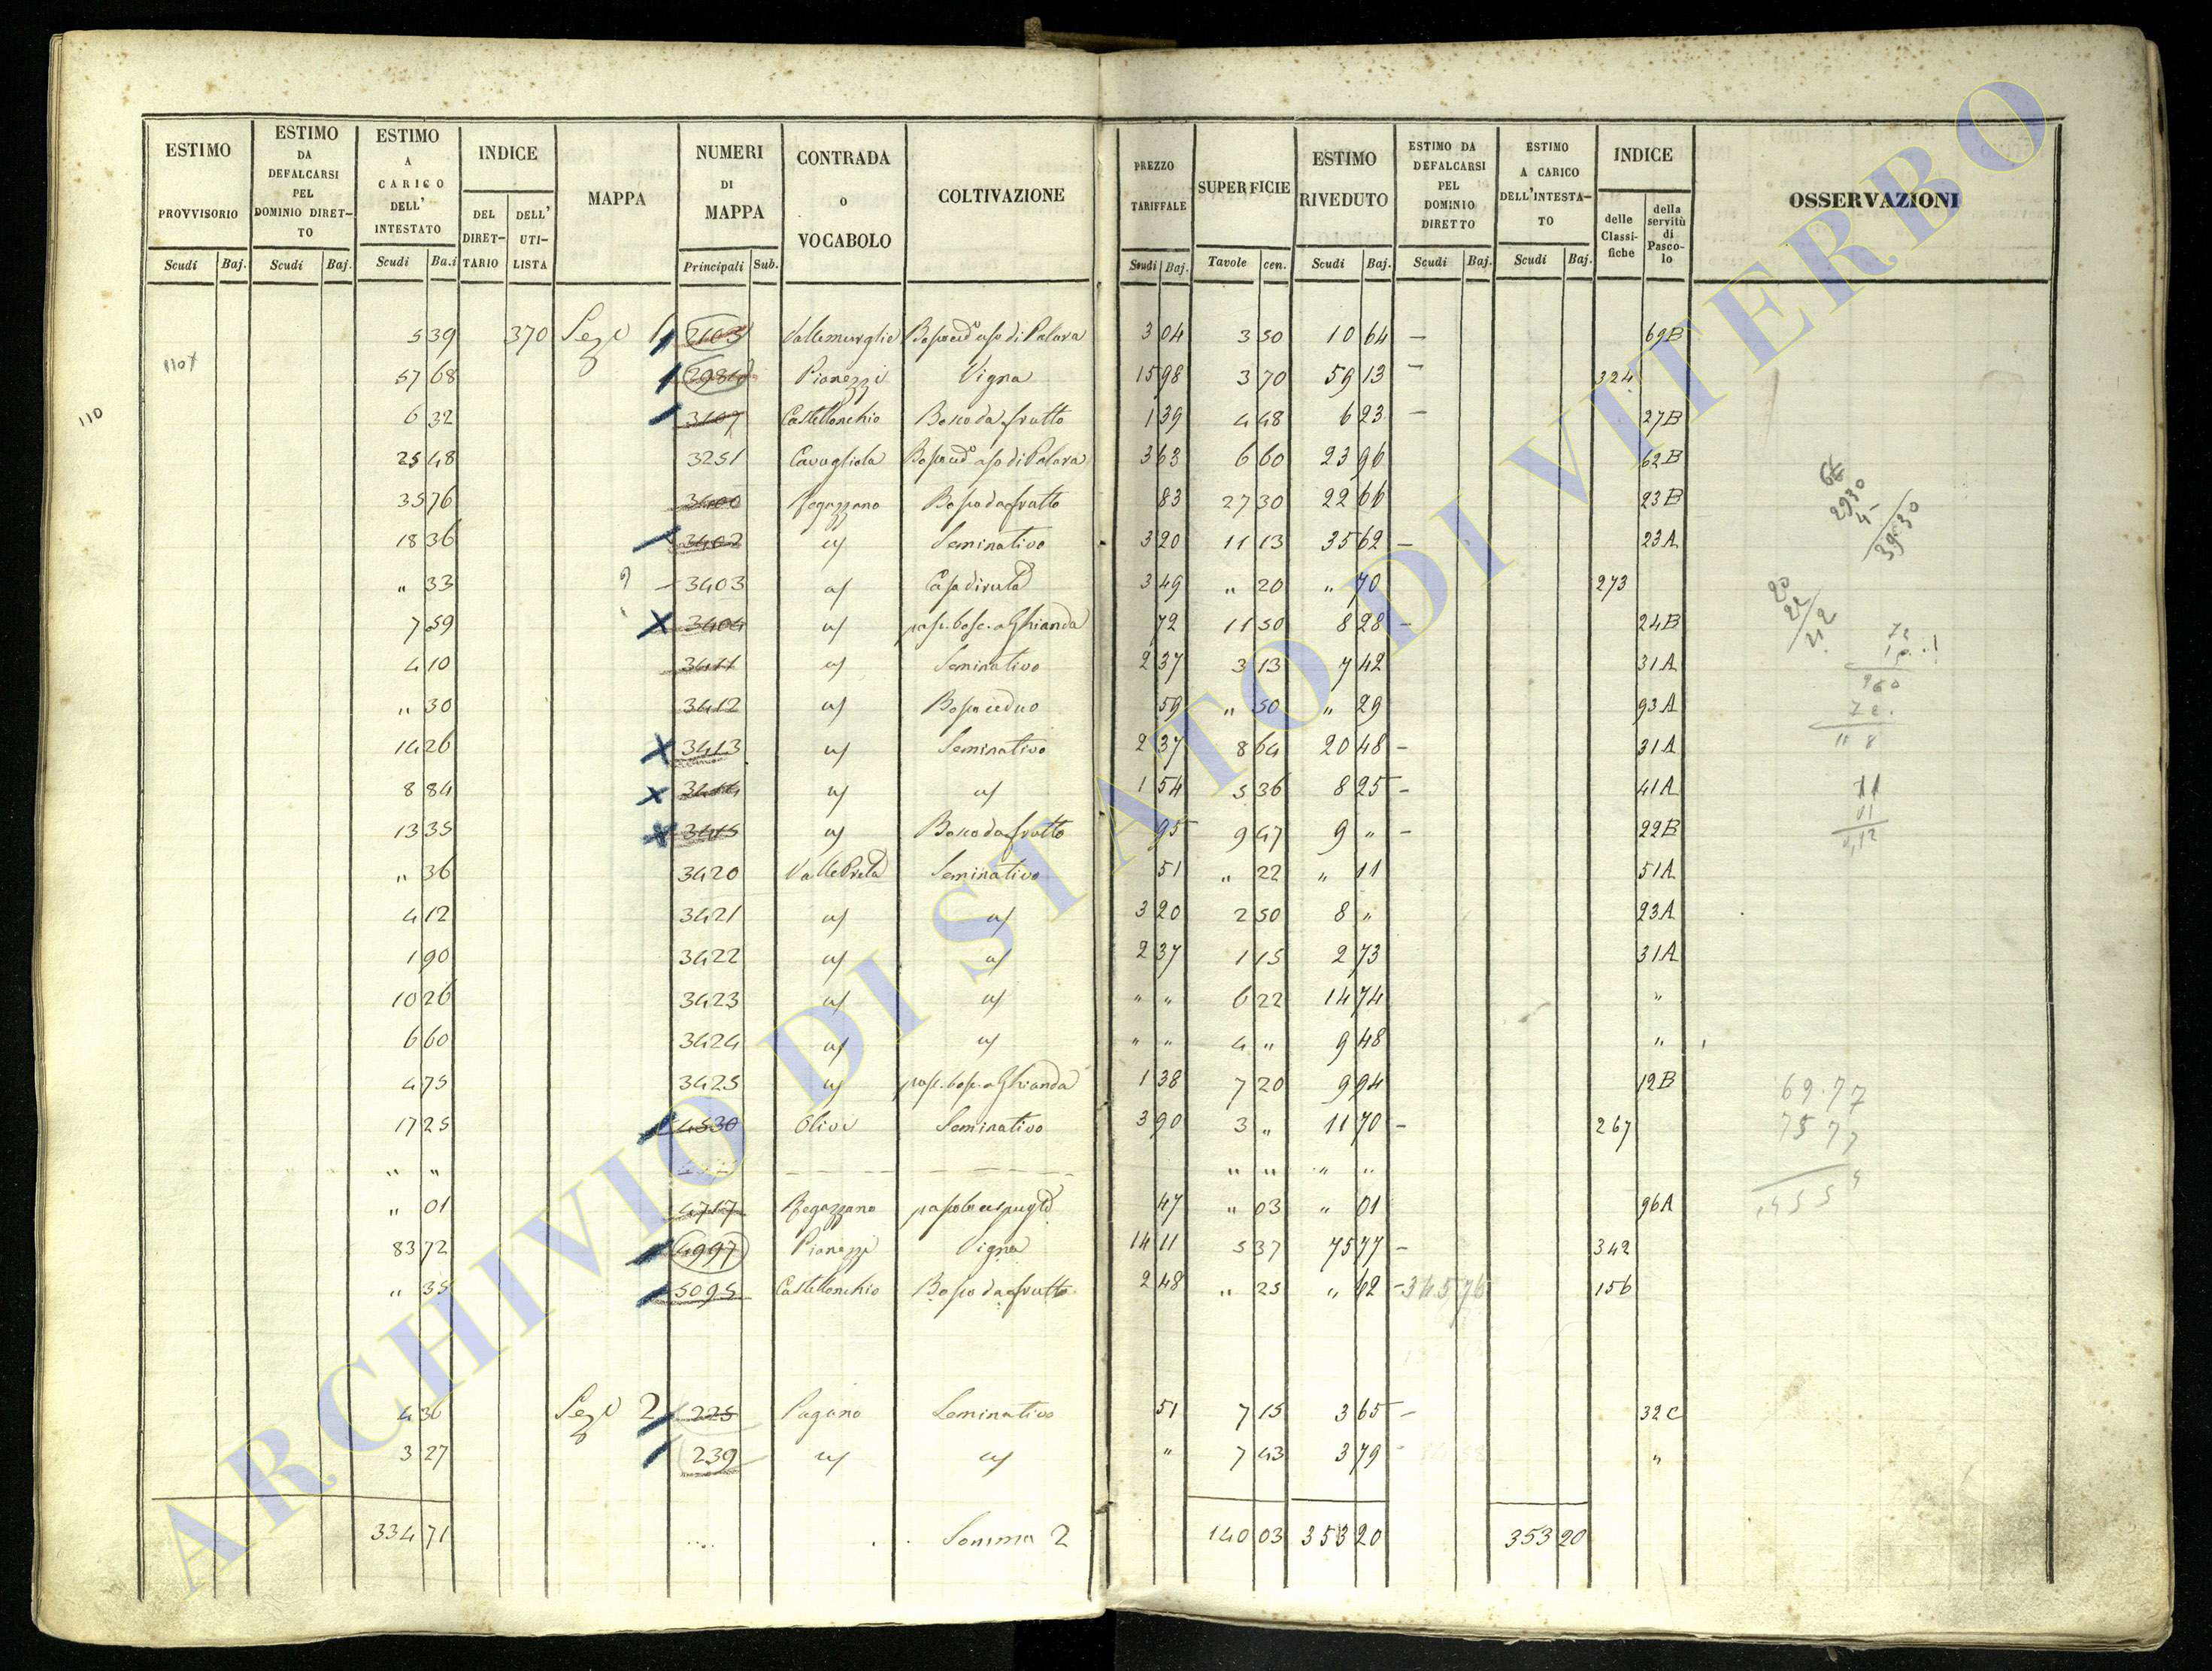 ESTIMO PROVVISORIO Scudi Baj. ESTIMO DA DEFALCARSI PEL DOMINIO DIRET-TO Scudi Baj. ESTIMO A CARICO DELL' INTESTATO Scudi Ba.i INDICE DEL DIRET-TARIO DELL' UTI-LISTA MAPPA NUMERI DI MAPPA Principali Sub. CONTRADA O VOCABOLO COLTIVAZIONE PREZZO TARIFFALE Scudi Baj. SUPERFICIE Tavole cen. ESTIMO RIVEDUTO Scudi Baj. ESTIMO DA DEFALCARSI PEL DOMINIO DIRETTO Scudi Baj. ESTIMO A CARICO DELL'INTESTA-TO Scudi Baj. INDICE delle Classi-fiche della servitù di Pasco-lo OSSERVAZIONI
5 39 370 Seze 1 2103 Vallemurglie 3 04 3 50 10 64 – 69B
57 68 Pianezzi Vigna 15 98 3 70 59 13 – 324
110
6 32 3107 Castellonchio Bosco da frutto 1 39 4 48 6 23 – 27B
25 48 3251 Cavugliola 3 63 6 60 23 96 62B
35 76 3400 Regazzano Bosco da frutto 83 27 30 22 66 23B
18 36 3402 a/ Seminativo 3 20 11 13 35 62 – 23A
" 33 – 3403 a/ Casa diruta 3 49 " 20 " 70 273
7 59 X 3404 a/ pasc. bosc. a Ghianda 72 11 50 8 28 – 24B
4 10 3411 a/ Seminativo 2 37 3 13 7 42 31A
" 30 3412 a/ Bosco ceduo 59 " 50 " 29 93A
14 26 X 3413 a/ Seminativo 2 37 8 64 20 48 – 31A
8 84 X 3414 a/ a/ 1 54 5 36 8 25 – 41A
13 35 X 3415 a/ Bosco da frutto 95 9 47 9 " – 22B
" 36 3420 Valle Preta Seminativo 51 " 22 " 11 51A
4 12 3421 a/ a/ 3 20 2 50 8 " 23A
1 90 3422 a/ a/ 2 37 1 15 2 73 31A
10 26 3423 a/ a/ " " 6 22 14 74 "
6 60 3424 a/ a/ " " 4 " 9 48 "
4 75 3425 a/ pasc. bosc. a Ghianda 1 38 7 20 9 94 12B
17 25 4530 Olivi Seminativo 3 90 3 " 11 70 – 267
" " " " " "
" 01 4717 Regazzano 47 " 03 " 01 96A
83 72 4997 Pianezzi Vigna 14 11 5 37 75 77 – 342
" 35 5095 Castellonchio Bosco da frutto 2 48 " 25 " 62 – 345 76 156
4 36 Seze 2 225 Pagano Seminativo 51 7 15 3 65 – 32C
3 27 239 a/ a/ " 7 43 3 79 "
334 71 Somma 2 140 03 353 20 353 20
2930
39.30
69.77
75 77
ARCHIVIO DI STATO DI VITERBO